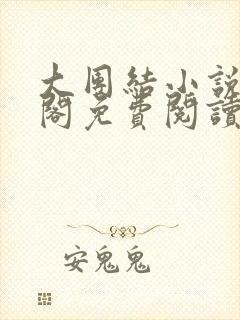 大團結小說
閣免費閱讀
安鬼鬼